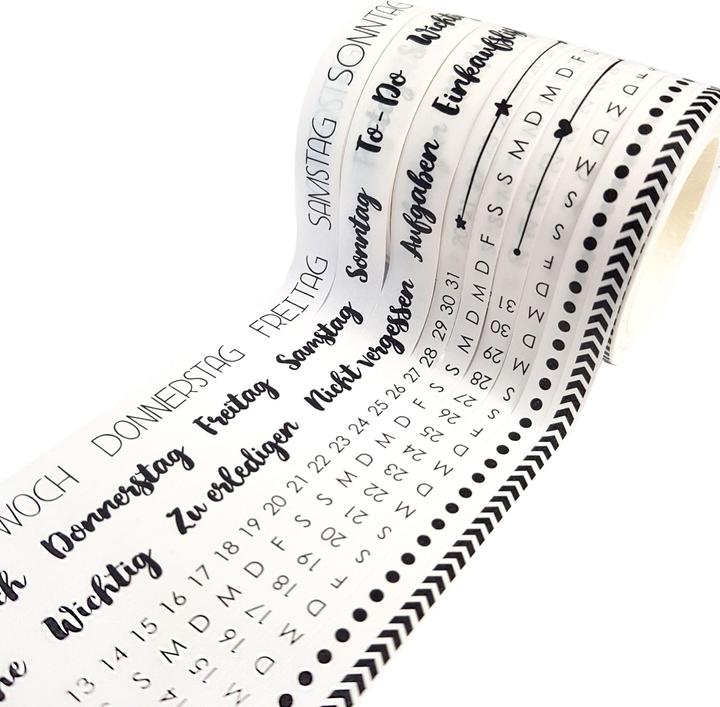 WOCH DONNERSTAG FREITAG SAMSTAG SONNTAG
Donnerstag Freitag Samstag Sonntag To-Do
Wichtig Zu erledigen Nicht vergessen Aufgaben Einkaufsli
13 14 15 16 17 18 19 20 21 22 23 24 25 26 27 28 29 30 31
S M D M D F S S M D M D F S S M D M D F S S M D M D F
14 15 16 17 18 19 20 21 22 23 24 25 26 27 28 29 30 31
M D M D F S S M D M D F S S M D M D F S S M D M D F